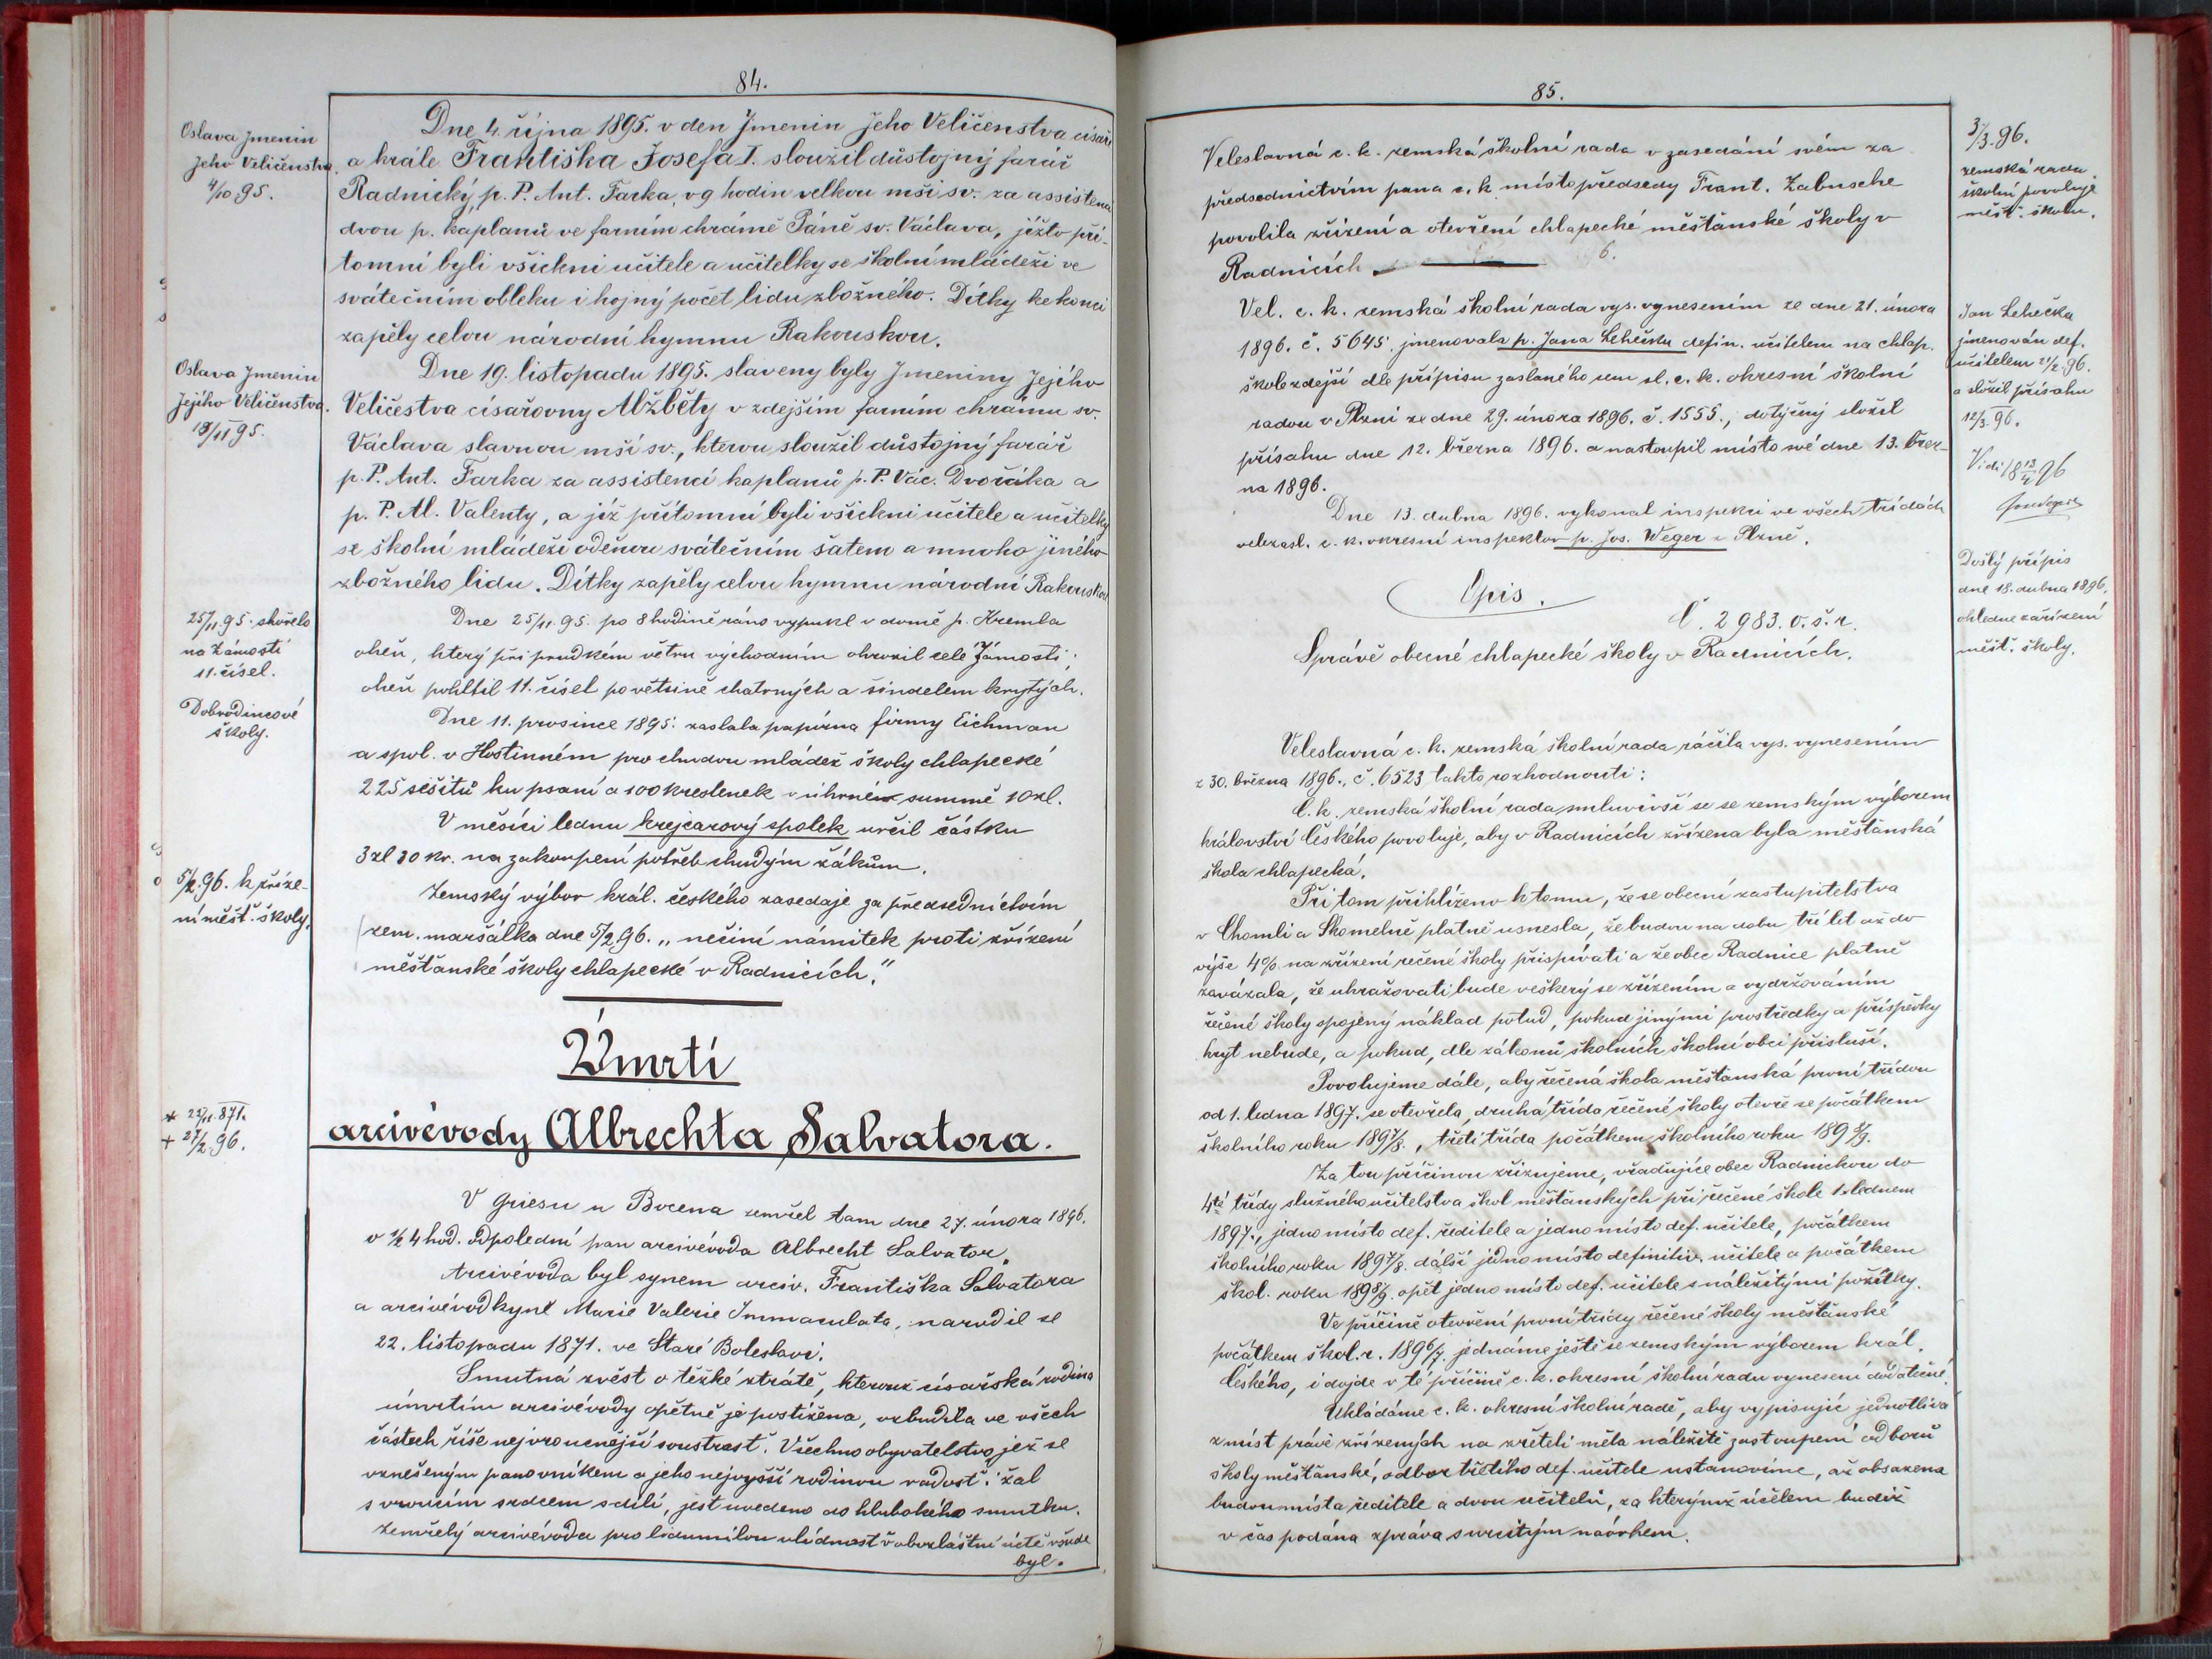 84.
Oslava Jmenin
Jeho Veličenstva.
4/10 95.
Dne 4. října 1895. v den Jmenin Jeho Veličenstva císaře
a krále Františka Josefa I. sloužil důstojný farář
Radnický, p. P. Ant. Farka, v 9 hodin velkou mši sv. za assistenci
dvou p. kaplanů ve farním chrámě Páně sv. Václava, jížto pří-
tomni byli všickni učitele a učitelky se školní mládeži ve
svátečním obleku i hojný počet lidu zbožného. Dítky ke konci
zapěly celou národní hymnu Rakouskou.
Oslava Jmenin
Jejího Veličenstva.
19/11 95.
Dne 19. listopadu 1895. slaveny byly Jmeniny Jejího
Veličestva císařovny Alžběty v zdejším farním chrámu sv.
Václava slavnou mší sv., kterou sloužil důstojný farář
p. P. Ant. Farka za assistenci kaplanů p. P. Vác. Dvořáka a
p. P. Al. Valenty, a již přítomni byli všickni učitele a učitelky
se školní mládeži oděnou svátečním šatem a mnoho jiného
zbožného lidu. Dítky zapěly celou hymnu národní Rakouskou
25/11. 95. shořelo
na Zámostí
11. čísel.
Dne 25/11. 95. po 8 hodině ráno vypukl v domě p. Kremla
oheň, který při prudkém větru východním ohrozil celé Zámostí;
oheň pohltil 11. čísel po většině chatrných a šindelem krytých.
Dobrodincové
školy.
Dne 11. prosince 1895. zaslala papírna firmy Eichman
a spol. v Hostinném pro chudou mládež školy chlapecké
225 sešitů ku psaní a 100 kreslenek v úhrném summě 10 zl.
V měsíci lednu krejcarový spolek určil částku
3 zl 30 kr. na zakoupení potřeb chudým žákům.
5/2. 96. k zříze-
ní měšť. školy.
Zemský výbor král. českého zasedaje za předsednictvím
zem. maršálka dne 5/2 96. „nečiní námitek proti zřízení
měšťanské školy chlapecké v Radnicích."
Úmrtí
* 22/11. 871.
+ 27/2. 96.
arcivévody Albrechta Salvatora.
V Griesu u Bocena zemřel tam dne 27. února 1896.
v ½ 4 hod. odpolední pan arcivévoda Albrecht Salvator.
Arcivévoda byl synem arciv. Františka Salvatora
a arcivévodkyně Marie Valerie Immaculata, narodil se
22. listopadu 1871. ve Staré Boleslavi.
Smutná zvěst o těžké ztrátě, kterouž císařská rodina
úmrtím arcivévody opětně je postižena, vzbudila ve všech
částech říše nejvroucnější soustrasť. Všechno obyvatelstvo, jež se
vznešeným panovníkem a jeho nejvyšší rodinou radosť i žal
s vroucím srdcem sdílí, jest uvedeno do hlubokého smutku.
Zemřelý arcivévoda pro lidumilou vlídnosť v obvzláštní úctě všude
byl.
85.
3/3. 96.
zemská rada
školní povoluje
měšť. školu.
Veleslavná c. k. zemská školní rada v zasedání svém za
předsednictvím pana c. k. místopředsedy Frant. Zabusche
povolila zřízení a otevření chlapecké měšťanské školy v
Radnicích
Jan Lehečka
jmenován def.
učitelem 21/2. 96.
a složil přísahu
12/3. 96.
Vel. c. k. zemská školní rada vys. vynesením ze dne 21. února
1896. č. 5645. jmenovala p. Jana Lehečku defin. učitelem na chlap.
škole zdejší dle přípisu zaslaného sem sl. c. k. okresní školní
radou v Plzni ze dne 29. února 1896. č. 1555., dotyčný složil
přísahu dne 12. března 1896. a nastoupil místo své dne 13. břez-
na 1896.
Vidi 18 13/4 96
Dne 13. dubna 1896. vykonal inspekci ve všech třídách
velezasl. c. k. okresní inspektor p. Jos. Weger z Plzně.
Došlý přípis
dne 18. dubna 1896.
ohledne zařízení
měšť. školy.
Opis.
Č. 2983. o. š. r.
Správě obecné chlapecké školy v Radnicích.
Veleslavná c. k. zemská školní rada ráčila vys. vynesením
z 30. března 1896., č. 6523 takto rozhodnouti:
C. k. zemská školní rada smluvivši se se zemským výborem
království Českého povoluje, aby v Radnicích zřízena byla měšťanská
škola chlapecká.
Při tom přihlíženo k tomu, že se obecní zastupitelstva
v Chomli a Skomelně platně usnesla, že budou na dobu tří let až do
výše 4% na zřízení řečené školy přispívati a že obec Radnice platně
zavázala, že uhražovati bude veškerý se zřízením a vydržováním
řečené školy spojený náklad potud, pokud jinými prostředky a příspěvky
kryt nebude, a pokud, dle zákonů školních školní obci přísluší.
Povolujeme dále, aby řečená škola měšťanská první třídou
od 1. ledna 1897. se otevřela, druhá třída řečené školy otevře se počátkem
školního roku 1897/8., třetí třída počátkem školního roku 1898/9.
Za tou příčinou zřizujeme, vřaďujíce obec Radnickou do
4té třídy služného učitelstva škol měšťanských při řečené škole 1. lednem
1897., jedno místo def. ředitele a jedno místo def. učitele, počátkem
školního roku 1897/8. další jedno místo definitiv. učitele a počátkem
škol. roku 1898/9. opět jedno místo def. učitele s náležitými požitky.
Ve příčině otevření první třídy řečené školy měšťanské
počátkem škol. r. 1896/7. jednáme ještě se zemským výborem král.
Českého, i dojde v té příčině c. k. okresní školní radu vynesení dodatečné.
Ukládáme c. k. okresní školní radě, aby vypisujíc jednotlivá
z míst právě zřízených na zřeteli měla náležité zastoupení odborů
školy měšťanské, odbor třetího def. učitele ustanovíme, až obsazena
budou místa ředitele a dvou učitelů, za kterýmž účelem budiž
v čas podána zpráva s určitým návrhem.